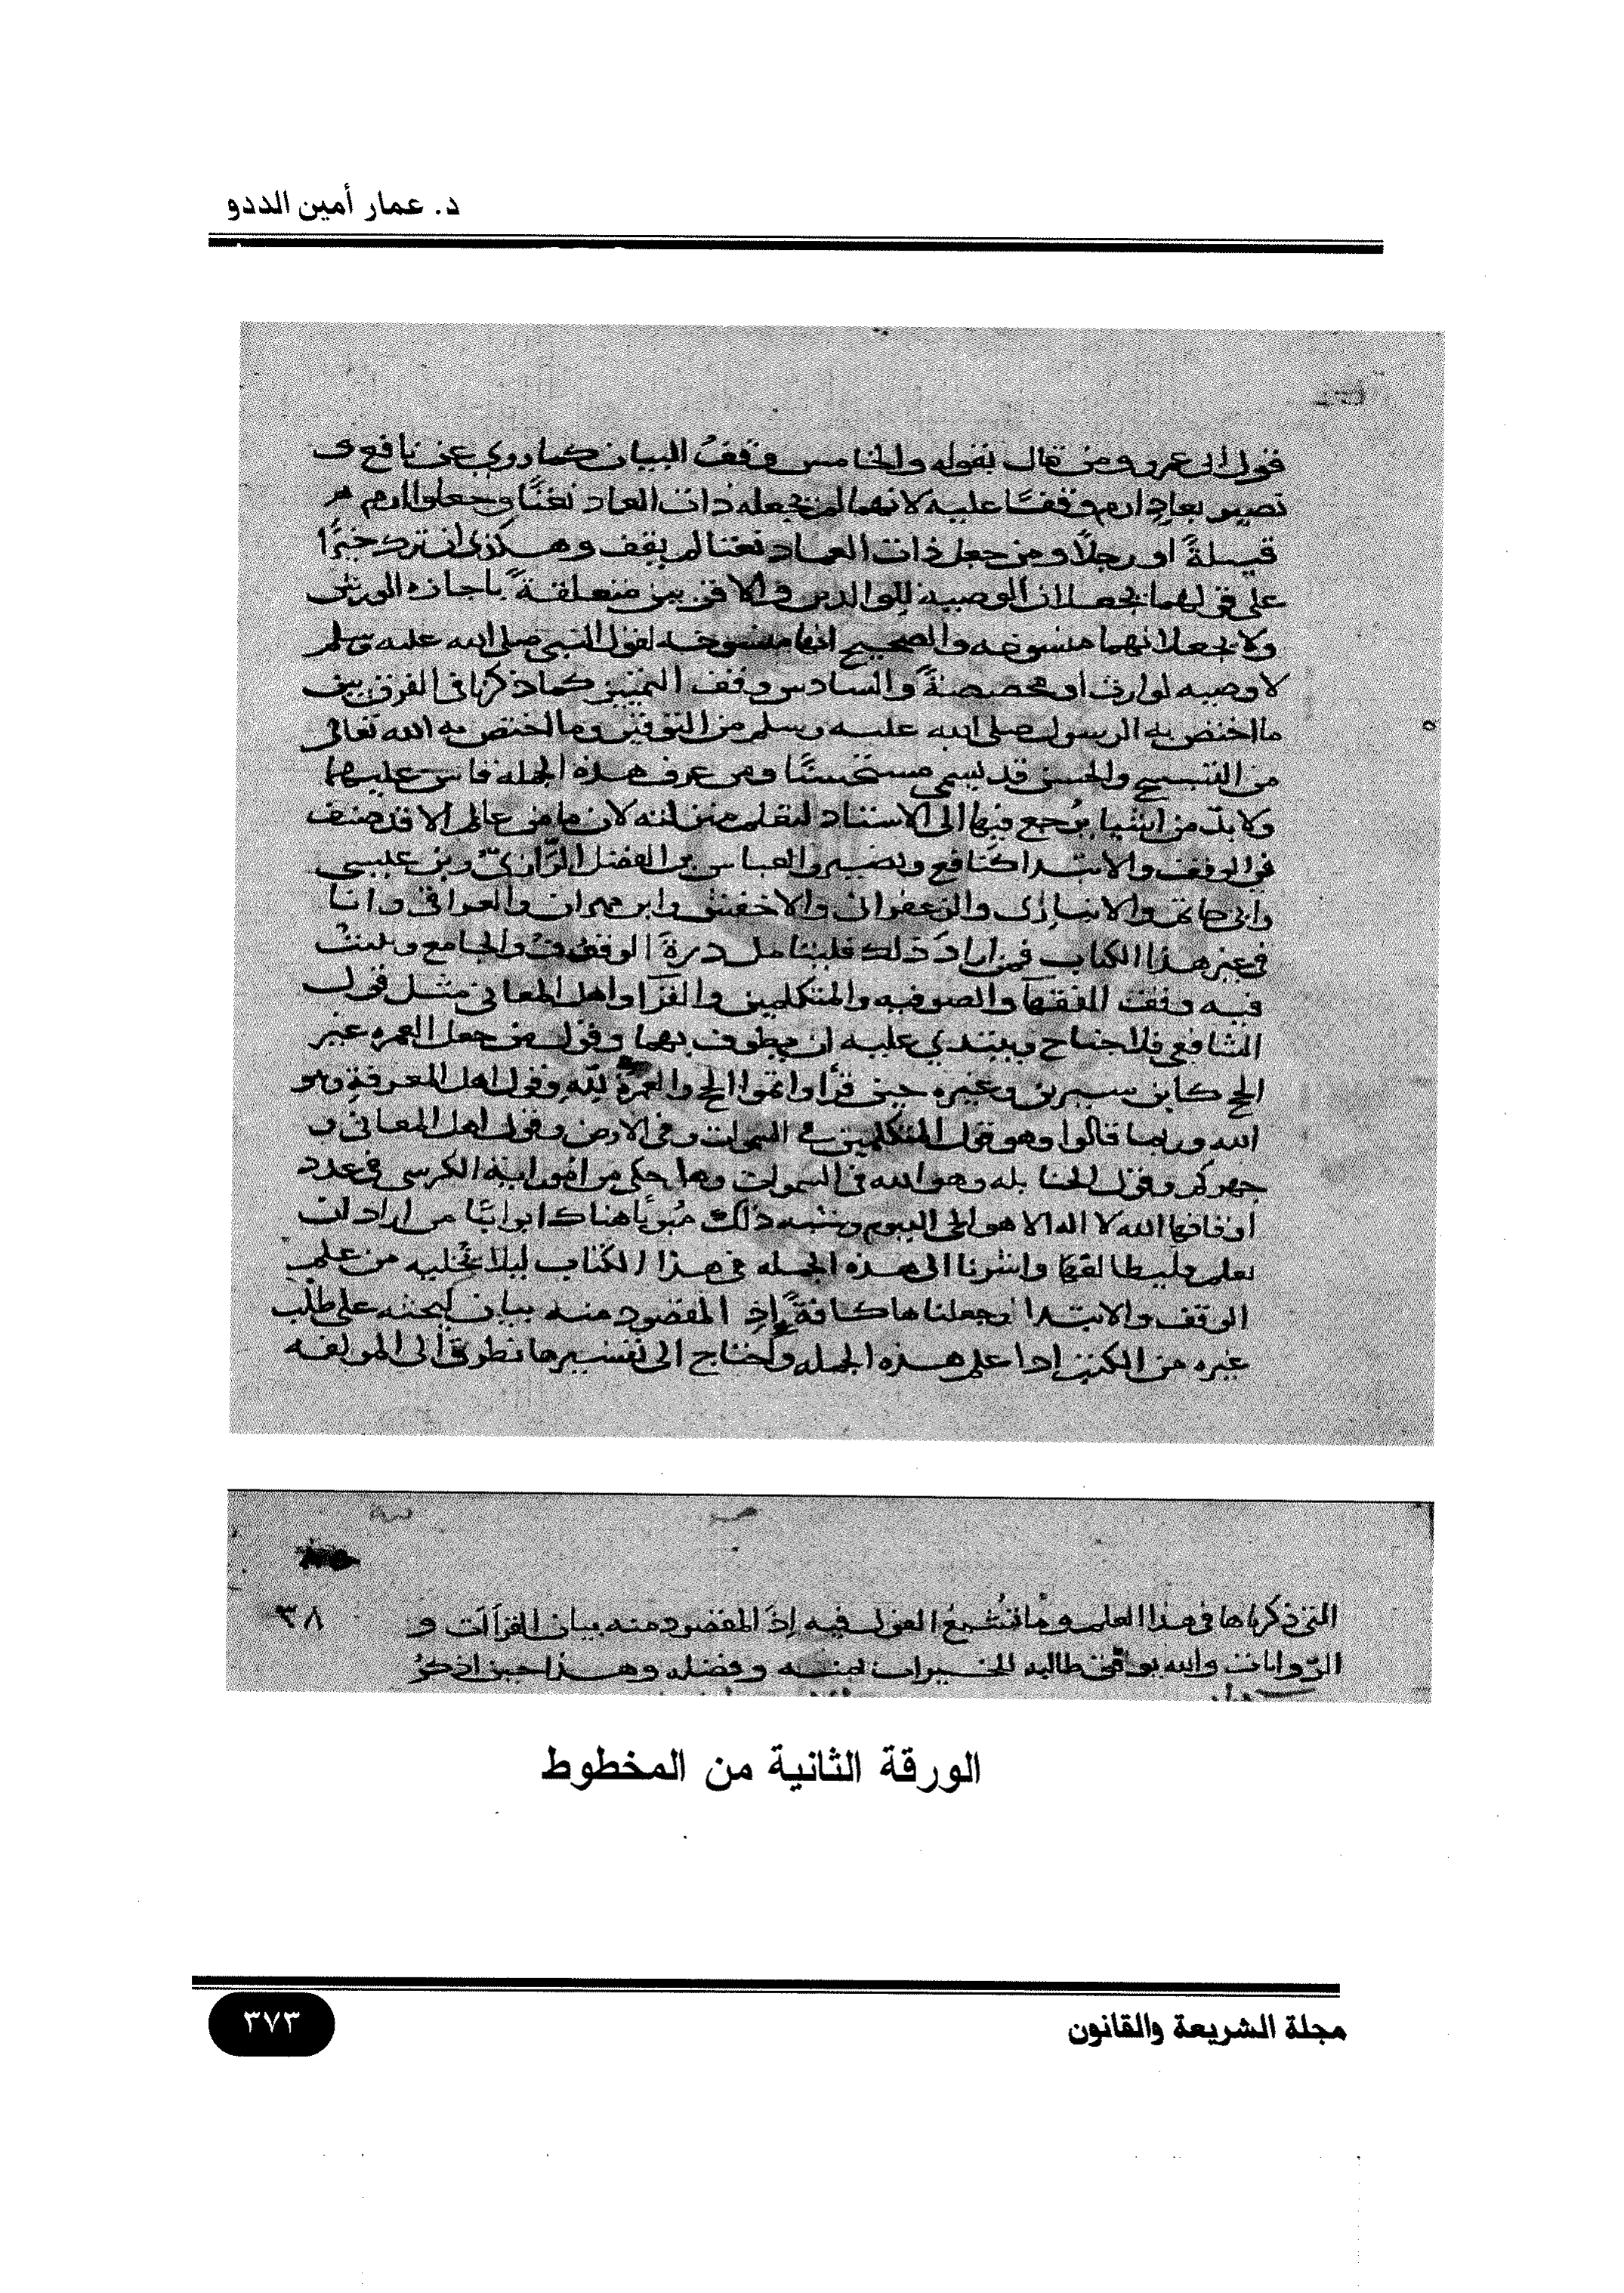 د. عمار أمين الددو
قول ابي عمرو ومن قال بقوله والخامس وقف البيان كما روي عن نافع و
نصير بعاد ارم وقفا عليه لانهما لم يجعله ذات العماد نعتا وجعلوا ارم
قبيلةً او رجلاً ومن جعل ذات العماد نعتا لم يقف وهكذى ان ترك خيرًا
على قولهما يجعلان الوصية للوالدين والاقربين متعلقةً باجازه الورثى
ولا يجعلانهما منسوخه والصحيح انها منسوخه لقول النبي صلى الله عليه وسلم
لا وصيه لوارث او مخصصةً والسادس وقف التمييز كما ذكرنا في الفرق بين
ما اختص به الرسول صلى الله عليه وسلم من التوقير وما اختص به الله تعالى
من التسبيح والحسن قد يسمى مستحسنًا ومن عرف هذه الجمله قاس عليها
ولا بدّ من اشيا يرجع فيها الى الاستاد لتعلم منزلته لان ما من عالم الا قد صنف
في الوقف والابتدا كنافع ونصير والعباس بن الفضل الرّازيّ وبن عيسى
وابي حاتم والانباري والزعفراني والاخفش وابن مهران والعراقي وانا
في غير هذا الكتاب فمن اراد ذلك فليتامل درة الوقوف والجامع وبينت
فيه وقف الفقها والصوفيه والمتكلمين والقرا واهل المعاني مثل قول
الشافعي فلا جناح ويبتدي عليه ان يطوف بهما وقول من جعل العمره غير
الحج كابن سيرين وغيره حين قرأ واتموا الحج والعمرة لله وقول اهل المعرفة وهو
الله وربما قالوا وهو قول المتكلمين في السموات وفي الارض وقول اهل المعاني و
جهركم وقول الحنابله وهو الله في السموات وما حكي من اية الكرسي في عدد
اوقافها الله لا اله الا هو الحي القيوم وشبه ذلك مبوبًا هناك ابوابًا من اراد ان
يعلم فليطالعها واشرنا الى هذه الجمله في هذا الكتاب ليلا نخليه من علم
الوقف والابتدا وجعلناها كافةً إذ المقصود منه بيان يحثه على طلب
غيره من الكتب إذا علم هذه الجمله واحتاج الى تفسيرها نظر الى المولفه
٣٨
التي ذكرناها في هذا العلم القول فيه إذ المقصود منه بيان القراآت و
الرّوايات والله يوفق طالبه للخيرات بمنه وفضله وهذا حين اذكر
الورقة الثانية من المخطوط
مجلة الشريعة والقانون
٣٧٣